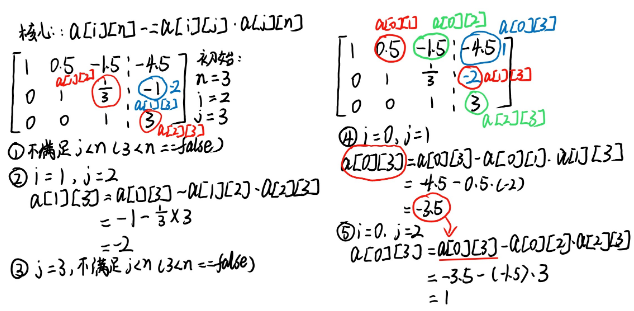 核心: a[i][n] -= a[i][j]·a[j][n]
1 0.5 -1.5 -4.5
a[1][2]
0 1 1/3 -1 -2
a[1][3]
0 0 1 3
a[2][3]
初始:
n=3
i=2
j=3
① 不满足 j<n (3<n==false)
② i=1, j=2
a[1][3]=a[1][3]-a[1][2]·a[2][3]
=-1-1/3×3
=-2
③ j=3, 不满足 j<n (3<n==false)
a[0][1] a[0][2] a[0][3]
1 0.5 -1.5 -4.5
0 1 1/3 -2 a[1][3]
0 0 1 3
a[2][3]
④ i=0, j=1
a[0][3]=a[0][3]-a[0][1]·a[1][3]
=-4.5-0.5·(-2)
=-3.5
⑤ i=0, j=2
a[0][3]=a[0][3]-a[0][2]·a[2][3]
=-3.5-(-1.5)·3
=1